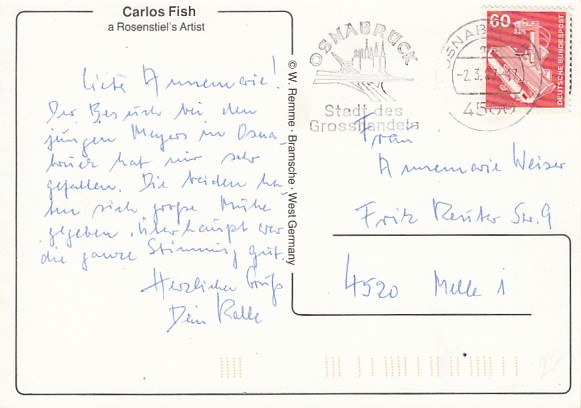 Carlos Fish
a Rosenstiel's Artist
Liebe Annemarie!
Der Besuch bei den
jungen Meyers in Osna
brück hat mir sehr
gefallen. Die beiden ha
ben sich große Mühe
gegeben. Überhaupt war
die ganze Stimmung gut.
Herzlicher Gruß
Dein Kalle
© W. Remme · Bramsche · West Germany
OSNABRÜCK
Stadt des
Grosshandels
OSNAB
-2.3.
4500
60
DEUTSCHE BUNDESPOST
Frau
Annemarie Weiser
Fritz Reuter Str. 9
4520 Melle 1